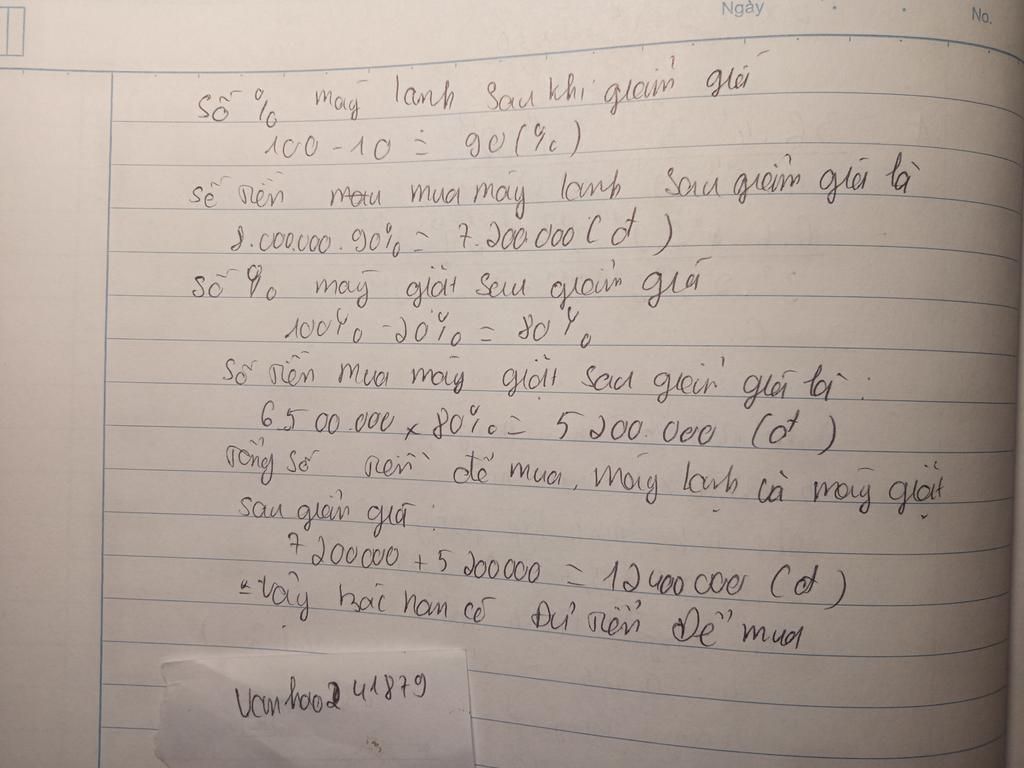 Ngày
No.
Số % máy lanh sau khi giảm giá
100 - 10 = 90 (%)
số tiền mua máy lanh sau giảm giá là
8.000.000.90% = 7.200.000 (đ)
số % máy giặt sau giảm giá
100% - 20% = 80%
Số tiền mua máy giặt sau giảm giá là :
6500.000 x 80% = 5200.000 (đ)
Tổng số tiền để mua, máy lạnh cà máy giặt
sau giảm giá :
7200000 + 5200000 = 12400000 (đ)
Vậy bác nam có đủ tiền để mua
Vanhao241879